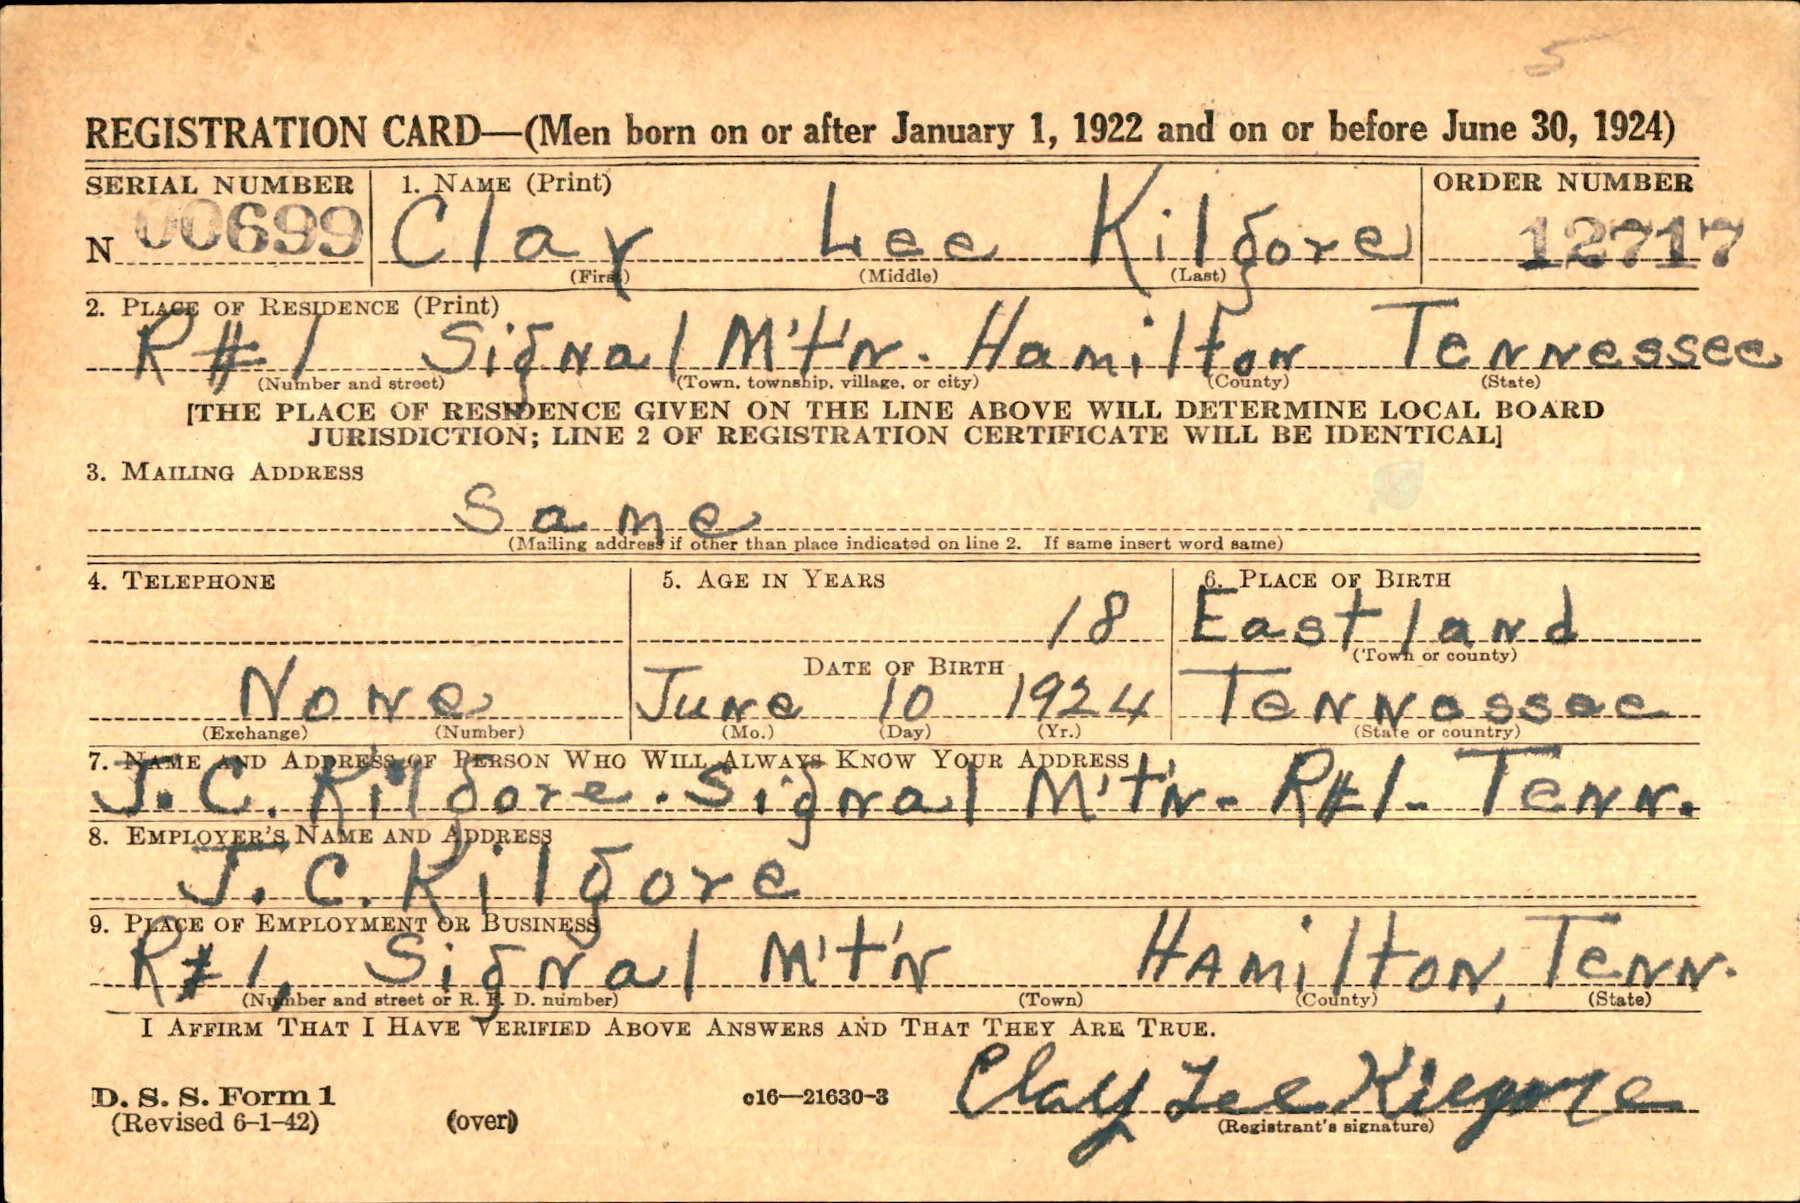 5
REGISTRATION CARD—(Men born on or after January 1, 1922 and on or before June 30, 1924)
SERIAL NUMBER 1. NAME (Print) ORDER NUMBER
N 00699 Clay Lee Kilgore 12717
(First) (Middle) (Last)
2. PLACE OF RESIDENCE (Print)
R#1 Signal M't'n. Hamilton Tennessee
(Number and street) (Town, township, village, or city) (County) (State)
[THE PLACE OF RESIDENCE GIVEN ON THE LINE ABOVE WILL DETERMINE LOCAL BOARD
JURISDICTION; LINE 2 OF REGISTRATION CERTIFICATE WILL BE IDENTICAL]
3. MAILING ADDRESS
Same
(Mailing address if other than place indicated on line 2. If same insert word same)
4. TELEPHONE 5. AGE IN YEARS 6. PLACE OF BIRTH
18 Eastland
DATE OF BIRTH (Town or county)
None June 10 1924 Tennessee
(Exchange) (Number) (Mo.) (Day) (Yr.) (State or country)
7. NAME AND ADDRESS OF PERSON WHO WILL ALWAYS KNOW YOUR ADDRESS
J. C. Kilgore. Signal M't'n- R#1- Tenn.
8. EMPLOYER'S NAME AND ADDRESS
J. C. Kilgore
9. PLACE OF EMPLOYMENT OR BUSINESS
R#1, Signal M't'n Hamilton, Tenn.
(Number and street or R. F. D. number) (Town) (County) (State)
I AFFIRM THAT I HAVE VERIFIED ABOVE ANSWERS AND THAT THEY ARE TRUE.
D. S. S. Form 1 c16—21630-3 Clay Lee Kilgore
(Revised 6-1-42) (over) (Registrant's signature)